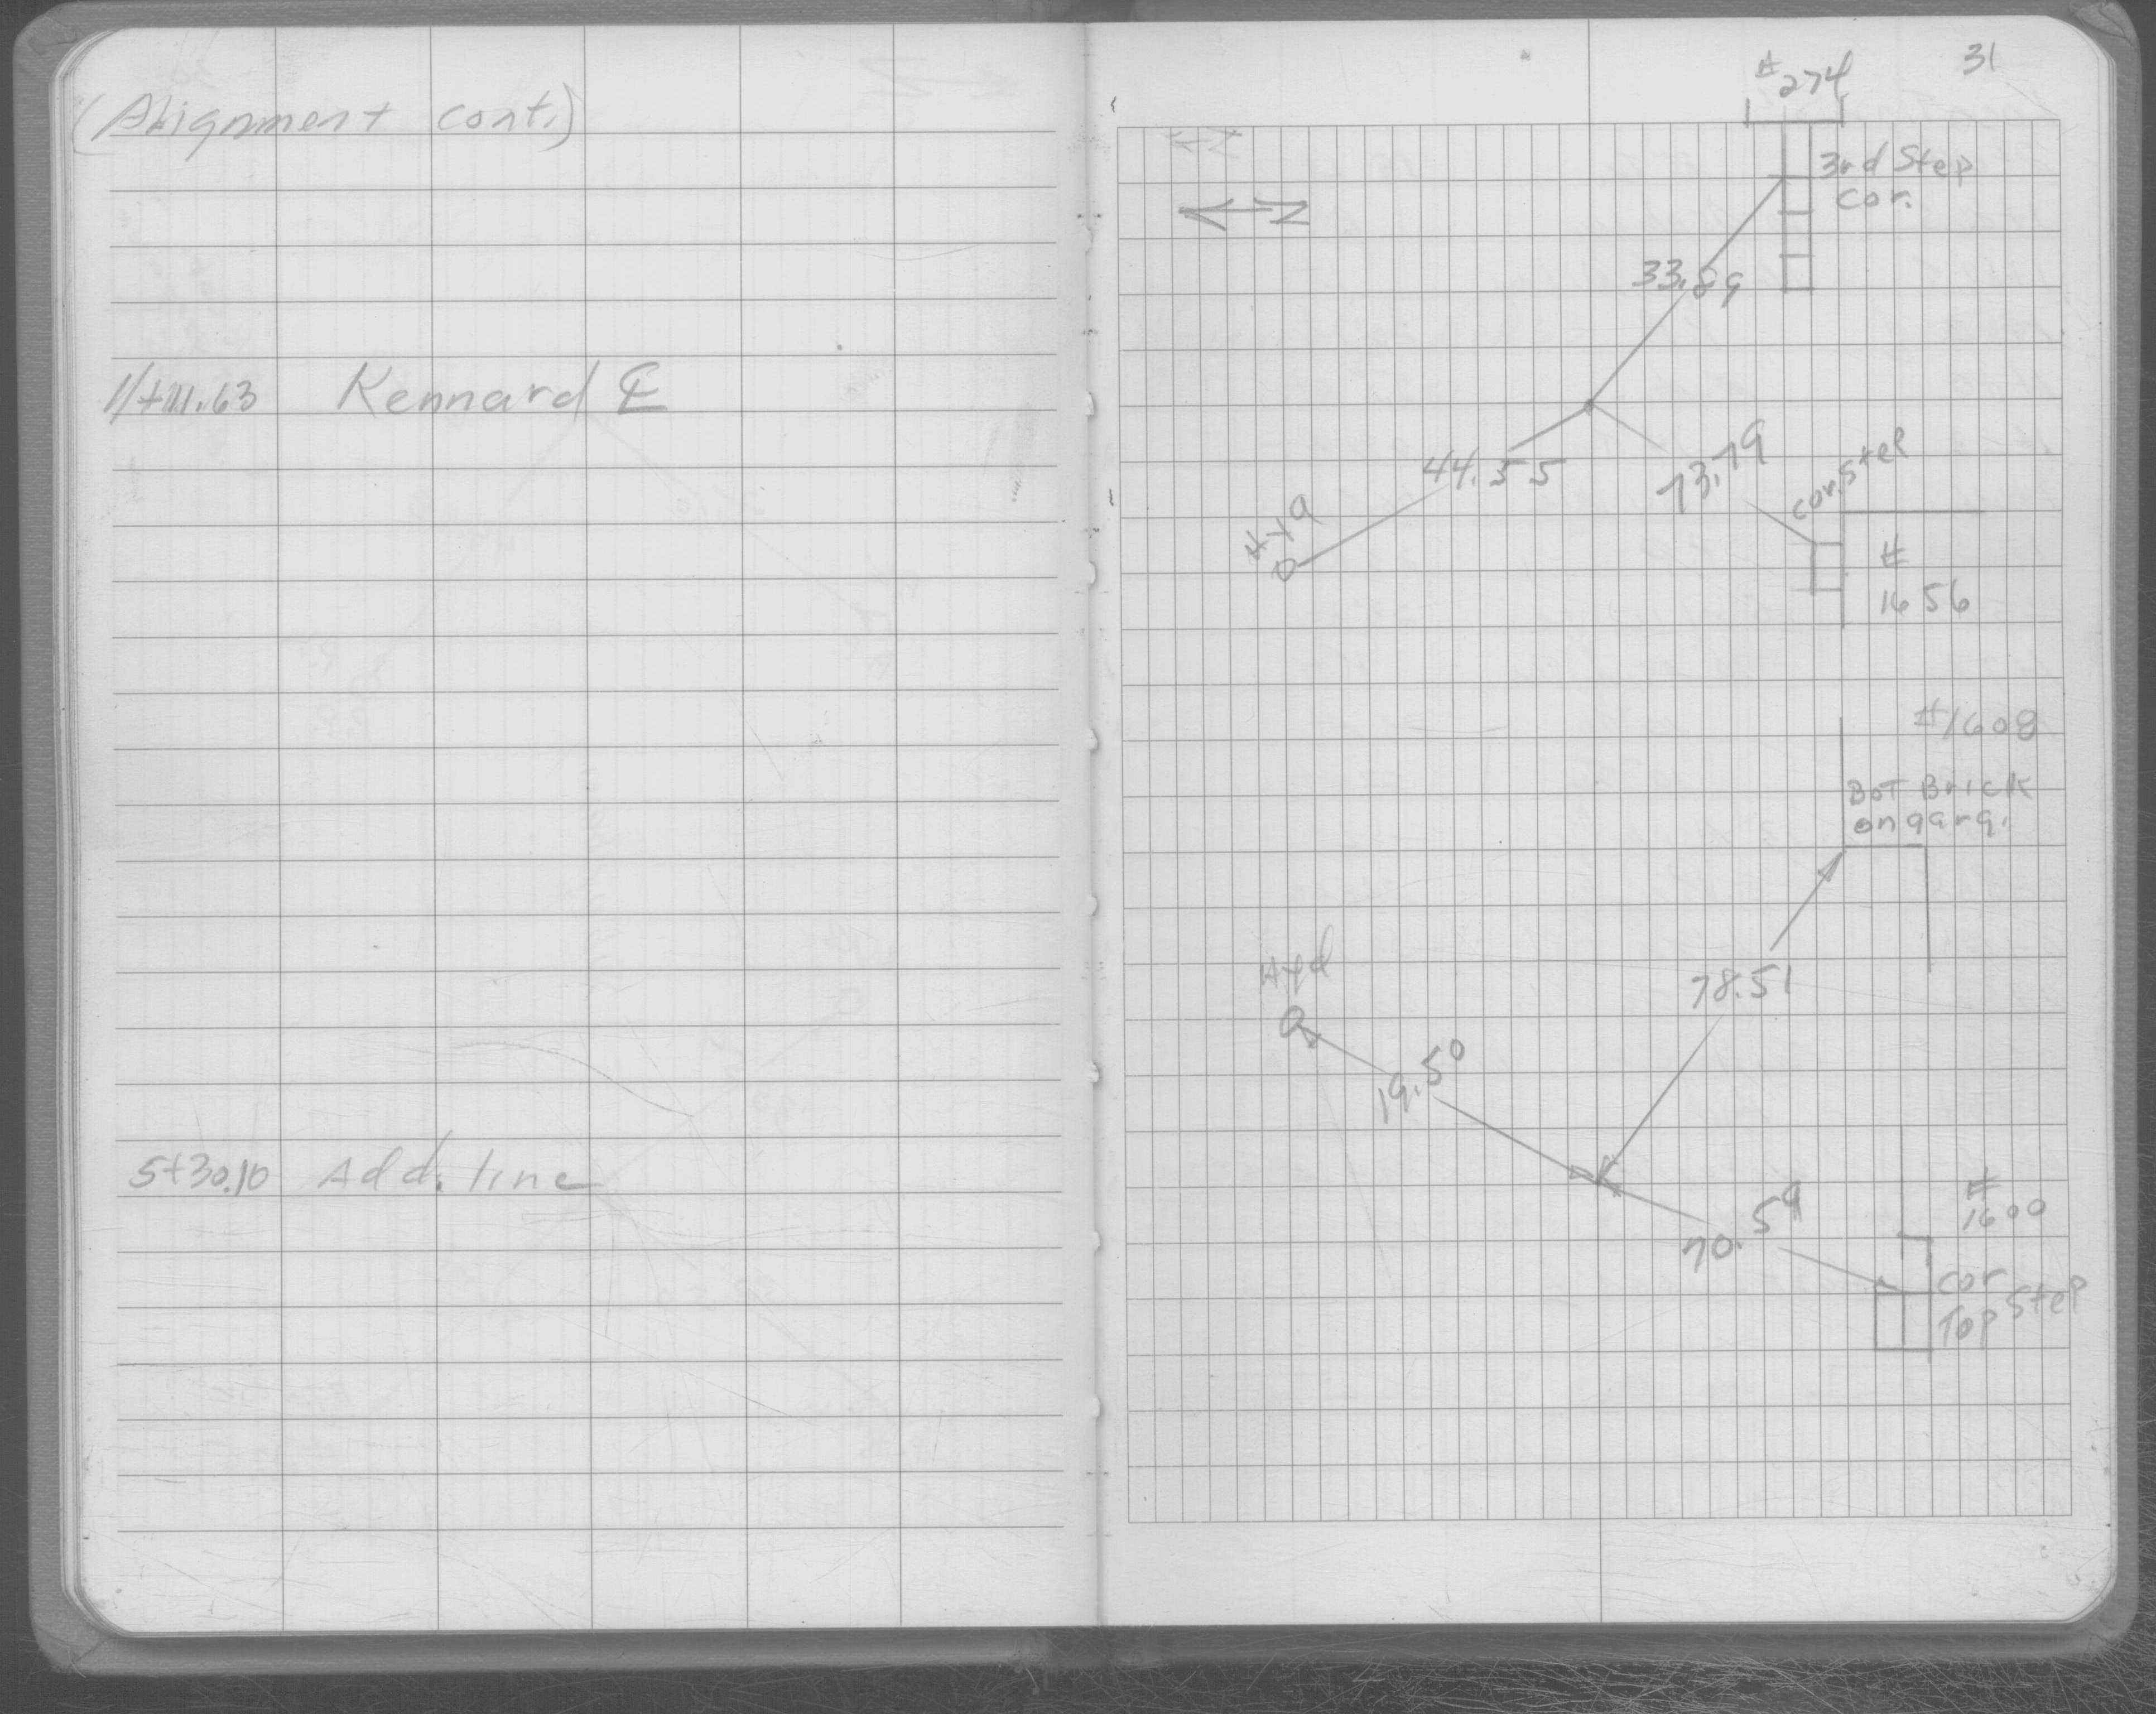 (Alignment cont.)
Kennard ℄
5+30.10 Add. line
31
#274
3rd Step
cor.
N
33.89
44.55
73.79
cor. Step
Hyd
#
1656
#1608
Bot Brick
on garg.
Hyd
78.51
19.50
70.59
#
1600
cor
Top Step